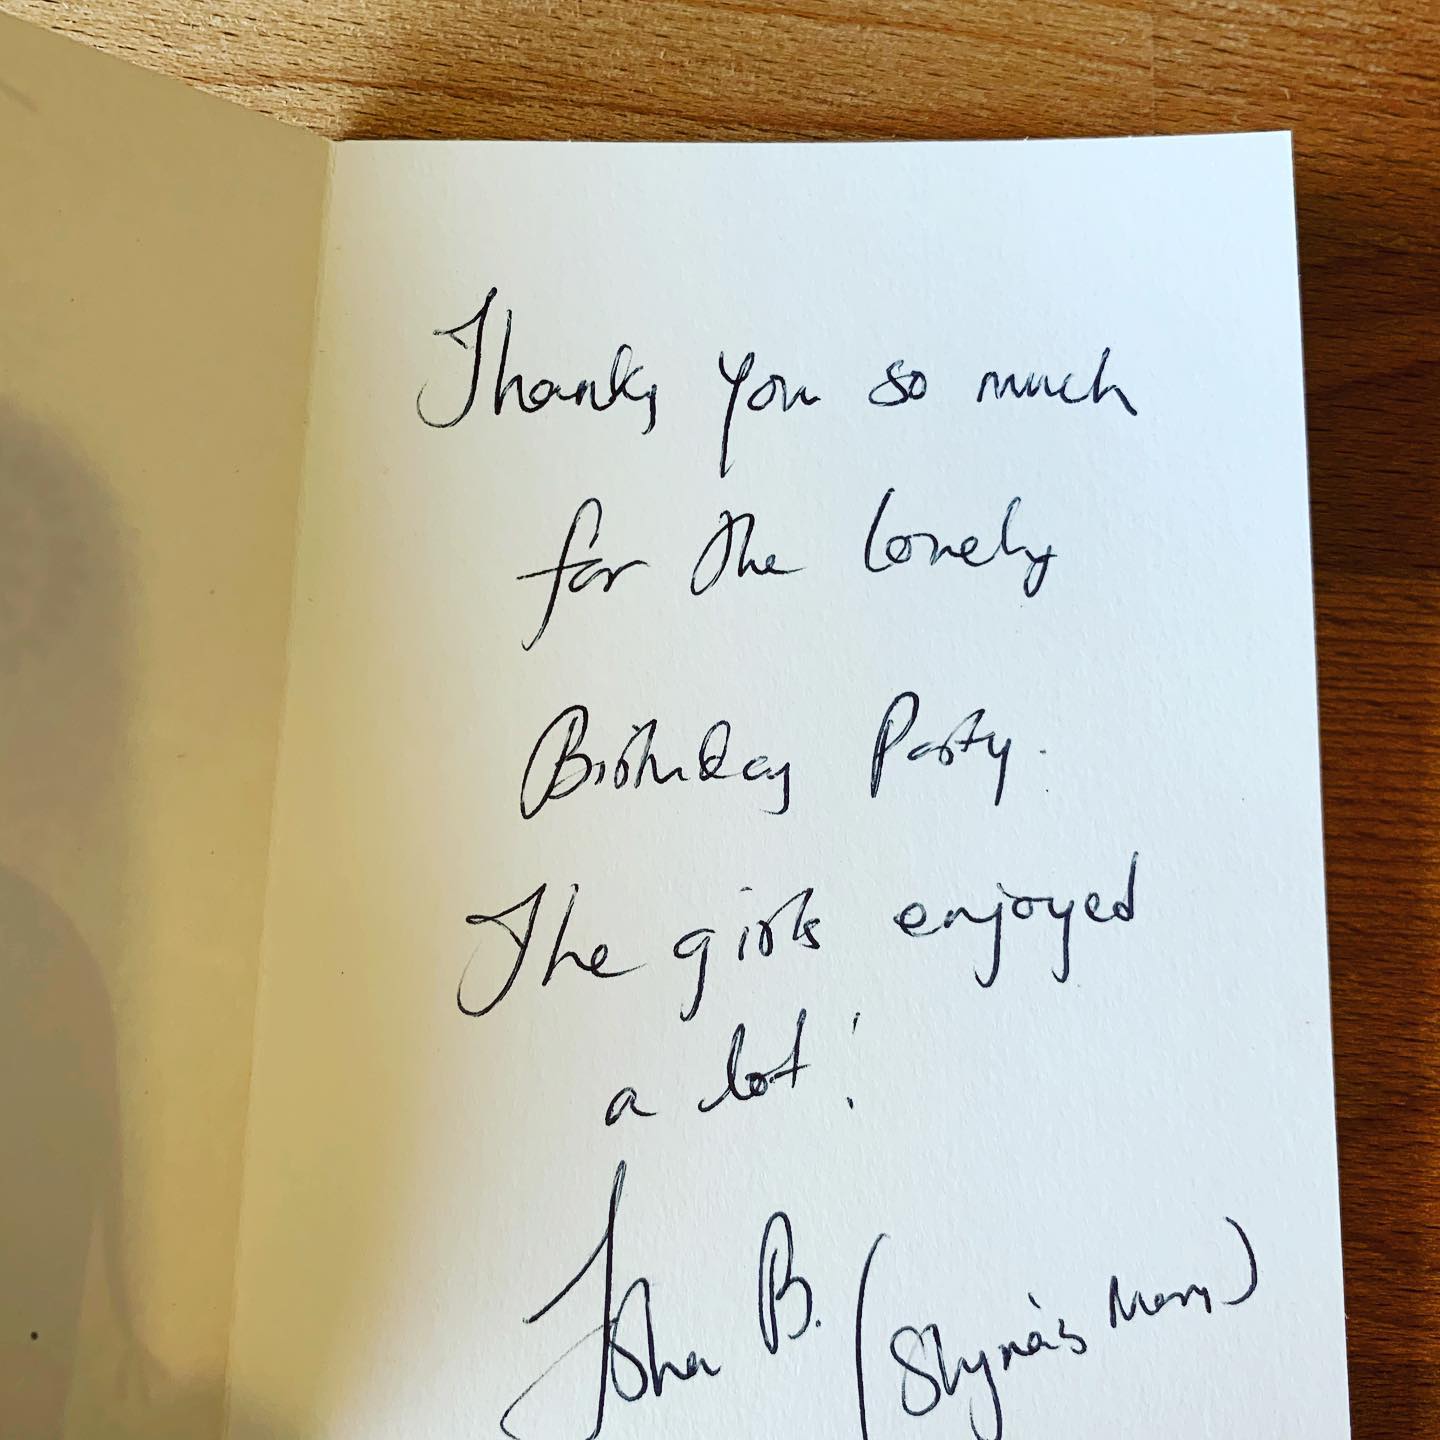 Thanks you so much
for the lovely
Birthday Party.
The girls enjoyed
a lot!
Isha B. (Shyna's Mom)